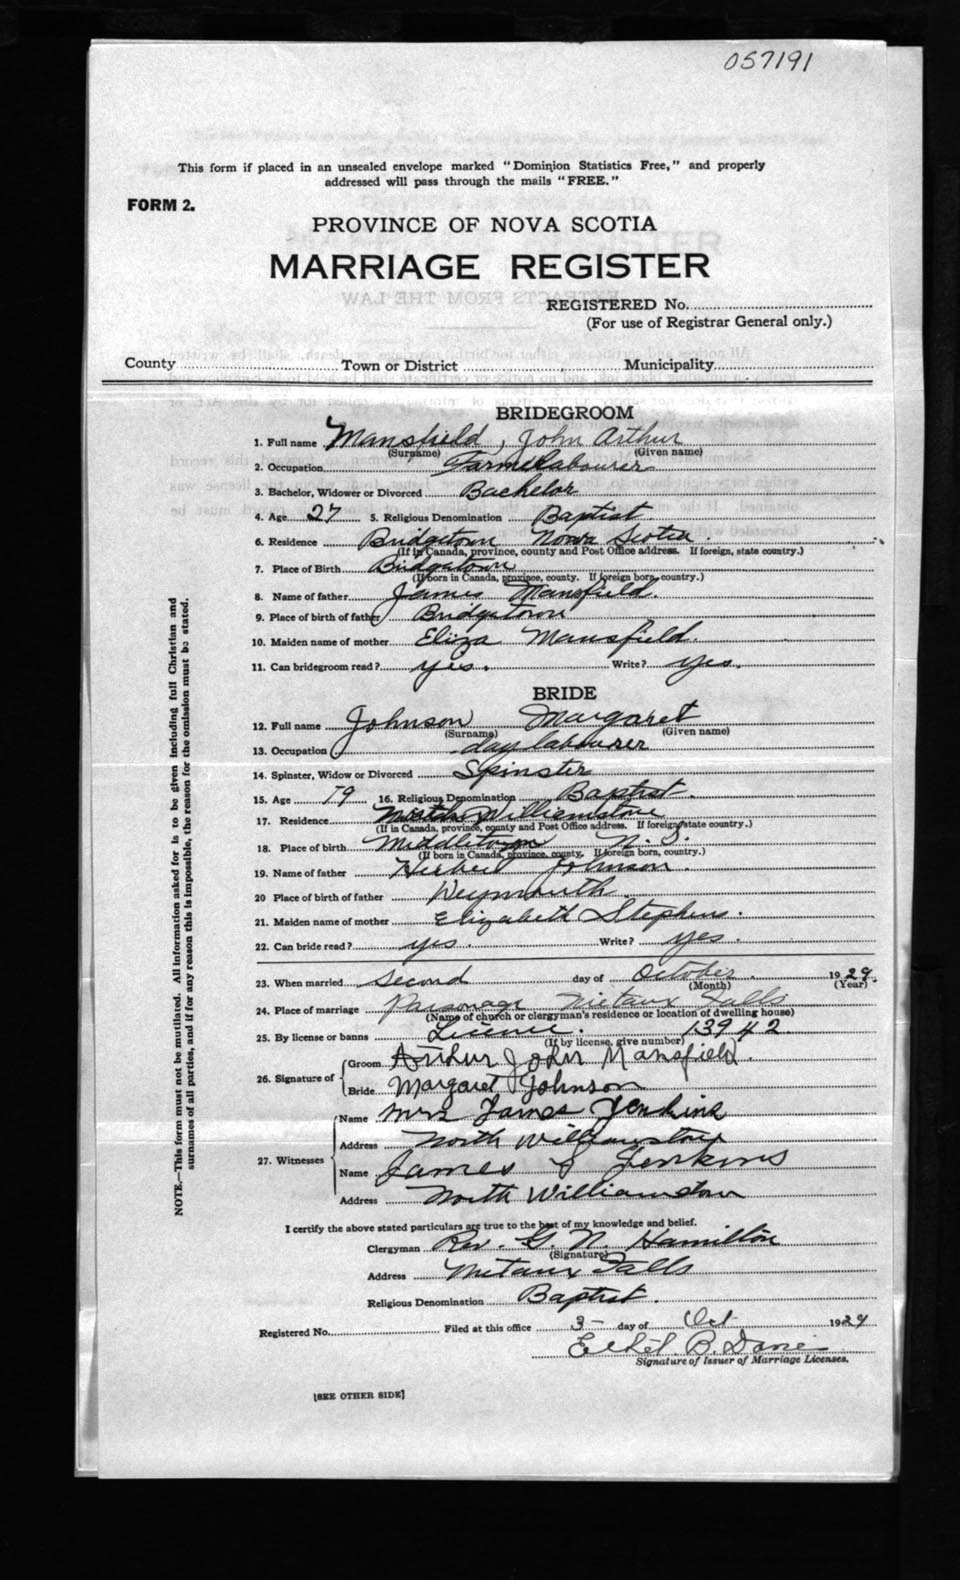 057191
This form if placed in an unsealed envelope marked "Dominion Statistics Free," and properly
addressed will pass through the mails "FREE."
FORM 2.
PROVINCE OF NOVA SCOTIA
MARRIAGE REGISTER
REGISTERED No.
(For use of Registrar General only.)
County Town or District Municipality
BRIDEGROOM
1. Full name Mansfield, John Arthur
(Surname) (Given name)
2. Occupation Farm labourer
3. Bachelor, Widower or Divorced Bachelor
4. Age 27 5. Religious Denomination Baptist.
6. Residence Bridgetown Nova Scotia.
(If in Canada, province, county and Post Office address. If foreign, state country.)
7. Place of Birth Bridgetown
(If born in Canada, province, county. If foreign born, country.)
8. Name of father James Mansfield.
9. Place of birth of father Bridgetown
10. Maiden name of mother Eliza Mansfield.
11. Can bridegroom read? yes. Write? yes.
BRIDE
12. Full name Johnson Margaret
(Surname) (Given name)
13. Occupation day labourer
14. Spinster, Widow or Divorced Spinster
15. Age 19 16. Religious Denomination Baptist.
17. Residence North Williamston
(If in Canada, province, county and Post Office address. If foreign, state country.)
18. Place of birth Middleton N.S.
(If born in Canada, province, county. If foreign born, country.)
19. Name of father Herbert Johnson.
20 Place of birth of father Weymouth
21. Maiden name of mother Elizabeth Stephens.
22. Can bride read? yes. Write? yes.
23. When married second day of October. 1929.
(Month) (Year)
24. Place of marriage Parsonage Nictaux Falls
(Name of church or clergyman's residence or location of dwelling house)
25. By license or banns License. 13942
(If by license, give number)
26. Signature of Groom Arthur John Mansfield.
Bride Margaret Johnson
27. Witnesses Name Mrs James Jenkins
Address North Williamston
Name James S Jenkins
Address North Williamston
I certify the above stated particulars are true to the best of my knowledge and belief.
Clergyman Rev. G. N. Hamilton
(Signature)
Address Nictaux Falls
Religious Denomination Baptist.
Registered No. Filed at this office 3- day of Oct 1929
Ethel B.
Signature of Issuer of Marriage Licenses.
[SEE OTHER SIDE]
NOTE.—This form must not be mutilated. All information asked for is to be given including full Christian and
surnames of all parties, and if for any reason this is impossible, the reason for the omission must be stated.